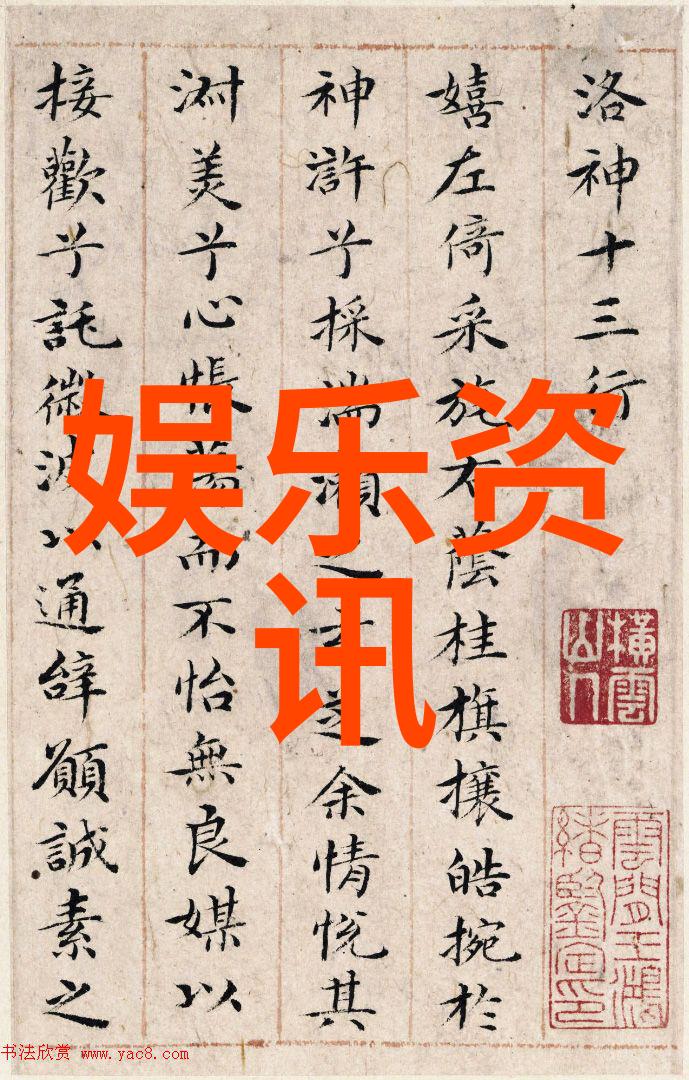 洛神十三行
嬉左倚采旄右蔭桂旗攘皓捥於
神滸兮採湍瀨之玄芝余情悅其
淑美兮心振蕩而不怡無良媒以
接歡兮託微波以通辭願誠素之
娱乐资
讯
橫雲山人
雲間王鴻緒鑒定印
书法欣赏 www.yac8.com